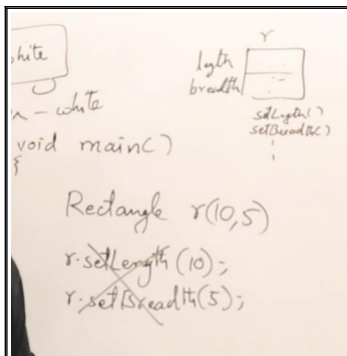 white
white
r
legth
breadth
setLegth()
setBreadth()
void main()
{
Rectangle r(10,5)
r.setLength(10);
r.setBreadth(5);